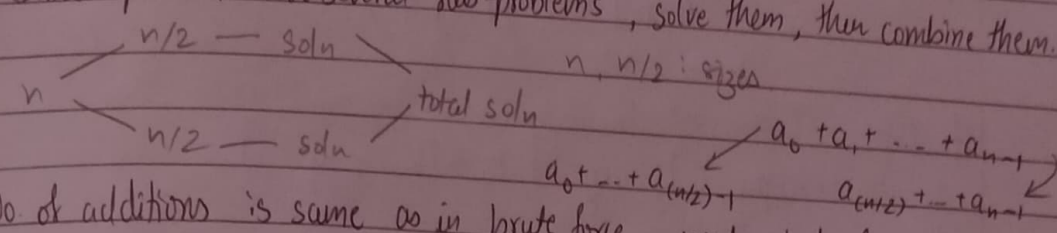 problems, solve them, then combine them.
n/2 — soln
n, n/2 : sizes
n
total soln
a₀ + a₁ + ... + aₙ₋₁
n/2 — soln
a₀ + ... + a₍ₙ/₂₎₋₁
a₍ₙ/₂₎ + ... + aₙ₋₁
of additions is same as in brute